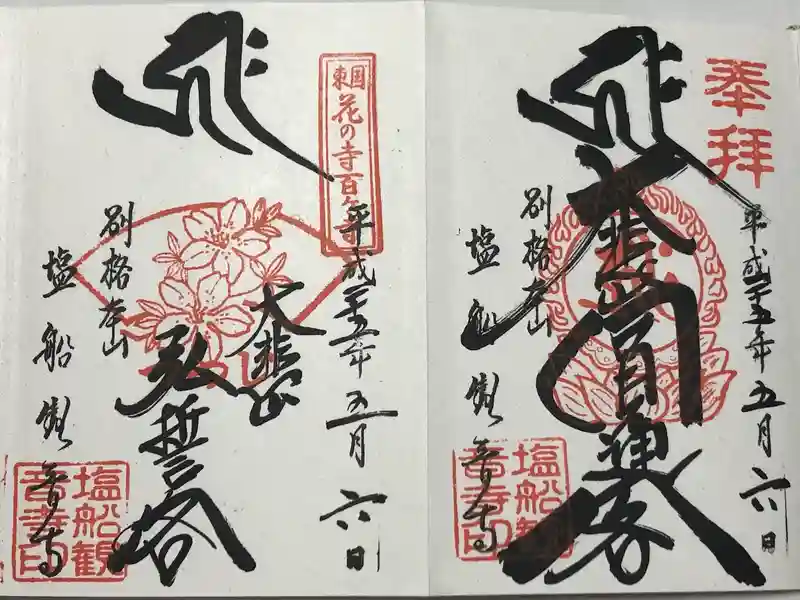 奉拝
平成二十五年五月六日
大悲山
圓通房
別格本山
塩船観音寺
塩船観音寺印
東国花の寺百ヶ寺
平成二十五年五月六日
大悲山
弘誓塔
別格本山
塩船観音寺
塩船観音寺印